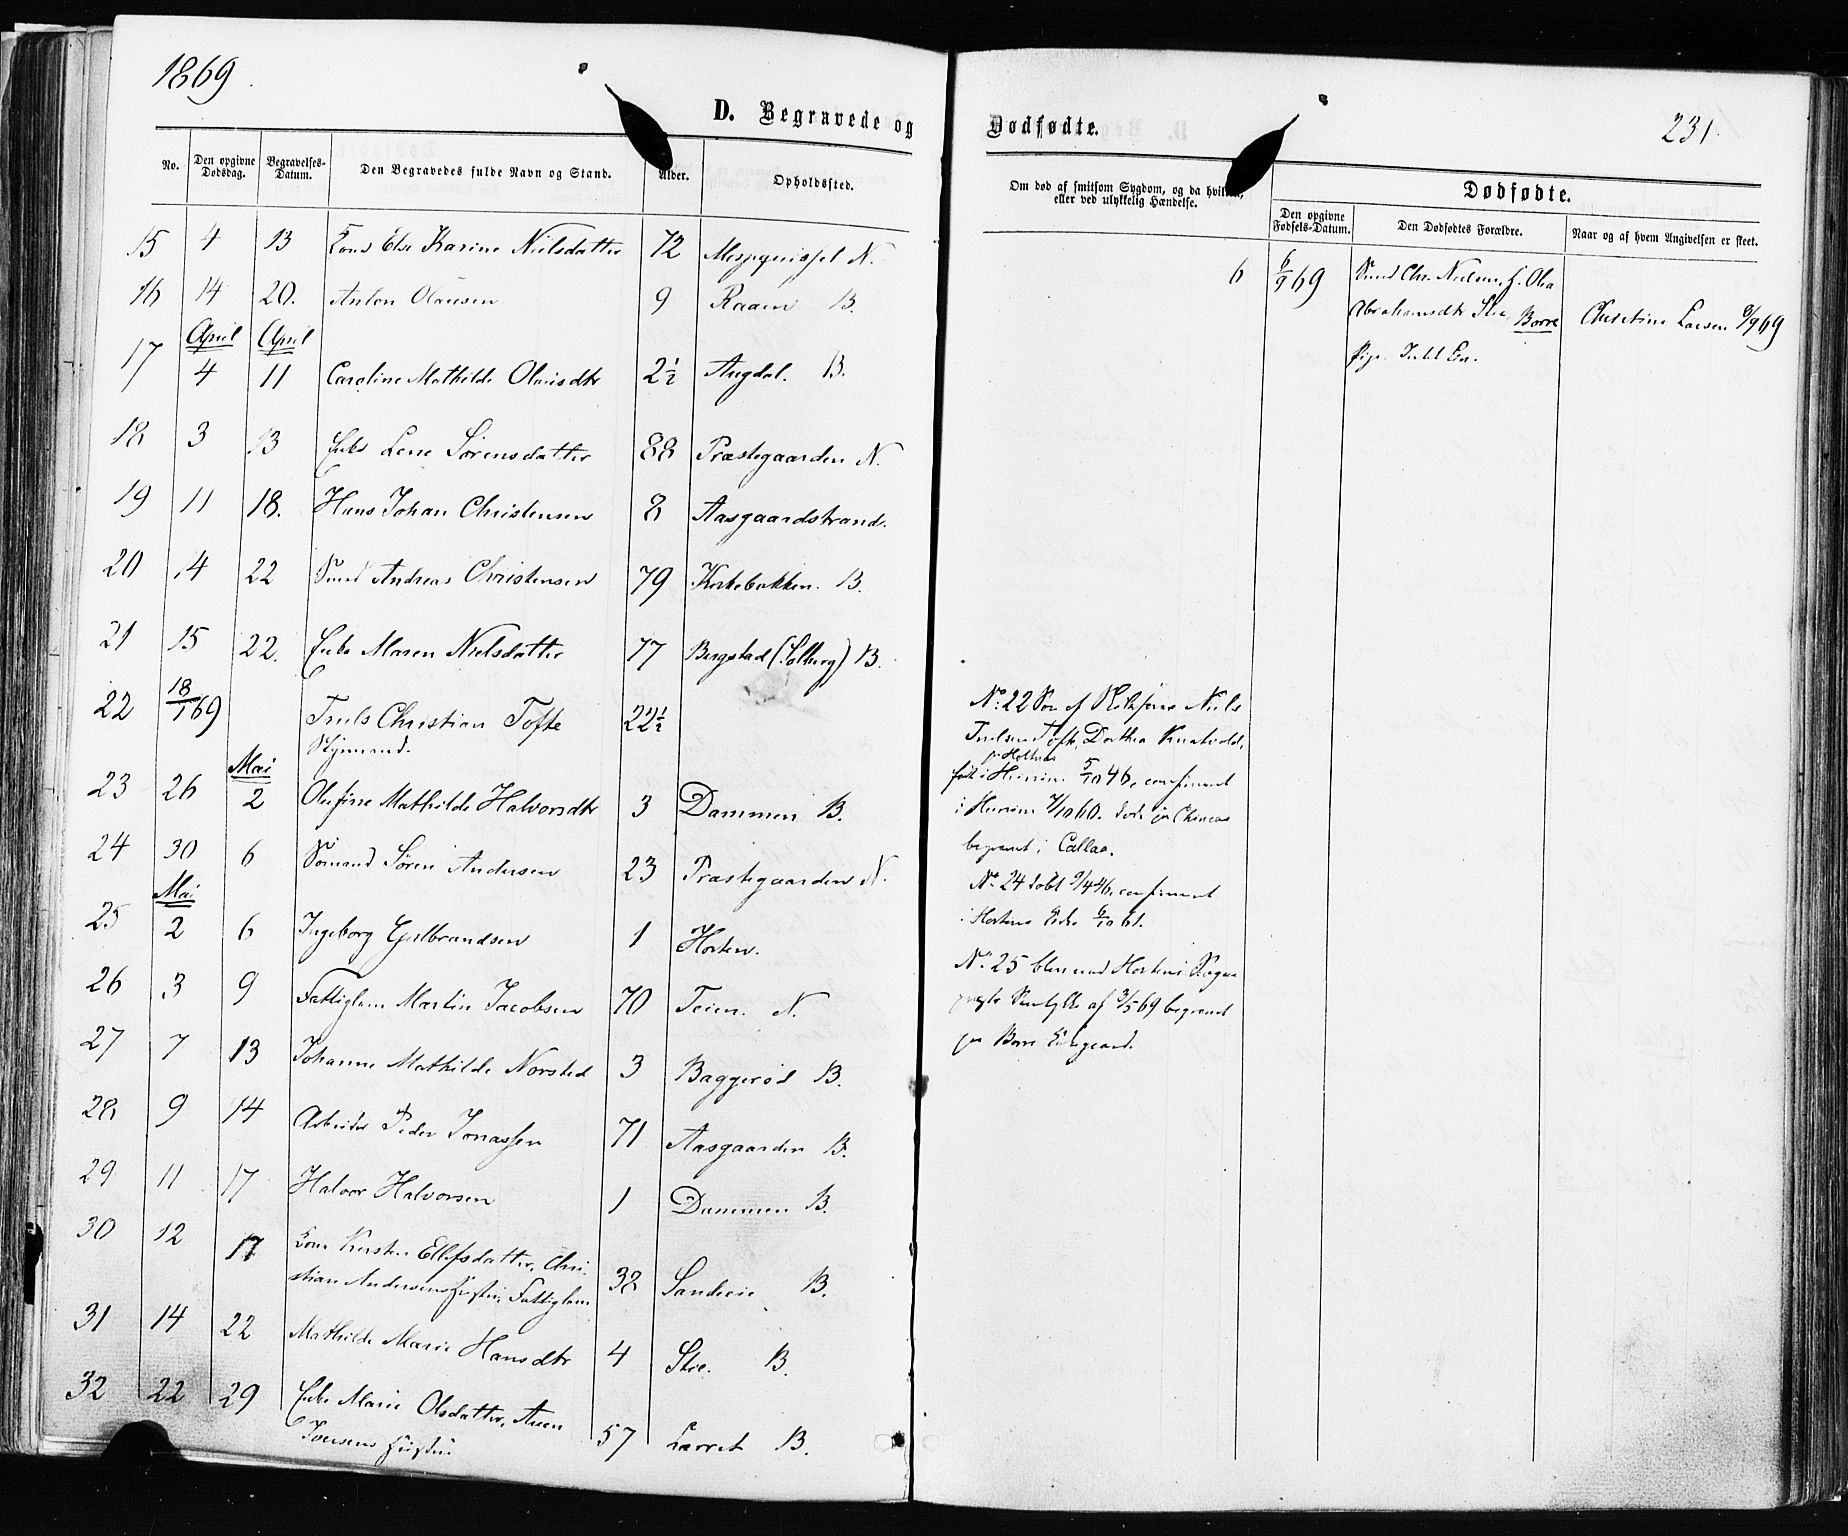 1869.
D. Begravede og
No.
Den opgivne Dødsdag.
Begravelses-Datum.
Den Begravedes fulde Navn og Stand.
Alder.
Opholdssted.
15 4 13 Else Karine Nielsdatter 72 N.
16 14 20. Anton Olausen 9 Raaen B.
April April
17 4 11 Caroline Mathilde Olausdtr 2½ Augdal. B.
18 3 13 Enke Lene Sørensdatter 88 Præstegaarden N.
19 11 18. Hans Johan Christensen 8 Aasgaardstrand.
20 14 22 Andreas Christensen 79 Kirkebakken. B.
21 15 22. Enke Maren Nielsdatter 77 Bergstad (Solberg) B.
22 18/1 69 Truls Christian Tofte 22½
Styrmand.
Mai
23 26 2 Olufine Mathilde Halvorsdtr 3 Dammen B.
24 30 6 Sømand Søren Andersen 23 Præstegaarden N.
Mai
25 2 6 Ingeborg Gulbrandsen 1 Horten.
26 3 9 Fattiglem Martin Jacobsen 70 Teien. N.
27 7 13 Johanne Mathilde Norsted 3 Baggerød B.
28 9 14 Arbeider Peder Jonassen 71 Aasgaarden B.
29 11 17 Halvor Halvorsen 1 Dammen B.
30 12 17 Kone Kirsten Ellefsdatter, Chri-
stian Andersens Hustru, Fattiglem 32 Sandeie B.
31 14 22 Mathilde Marie Hansdtr 4 Skee. B.
32 22 29 Enke Marie Olsdatter, Aren
Jensens Hustru 57 Larret B.
Dødfødte.
231.
Om død af smitsom Sygdom, og da hvilken, eller ved ulykkelig Hændelse.
Dødfødte.
Den opgivne Fødsels-Datum.
Den Dødfødtes Forældre.
Naar og af hvem Angivelsen er skeet.
6 6/9 69 Chr. Nielsen, h. Olea
Abrahamsdtr Skee, Borre Christine Larsen 9/9 69
Pige.
No: 22 Søn af Niels
Trulsen Tofte, Dorthea
født i Hurum 5/10 46, confirmeret
i Hurum 7/10 60. Døde paa Chincas
begravet i Callao.
No. 24 døbt 9/4 46, confirmeret
i Hortens Kirke 6/10 61.
No. 25 blev med Hortens Sogne-
præsts Samtykke af 3/5 69 begravet
paa Borre Kirkegaard.